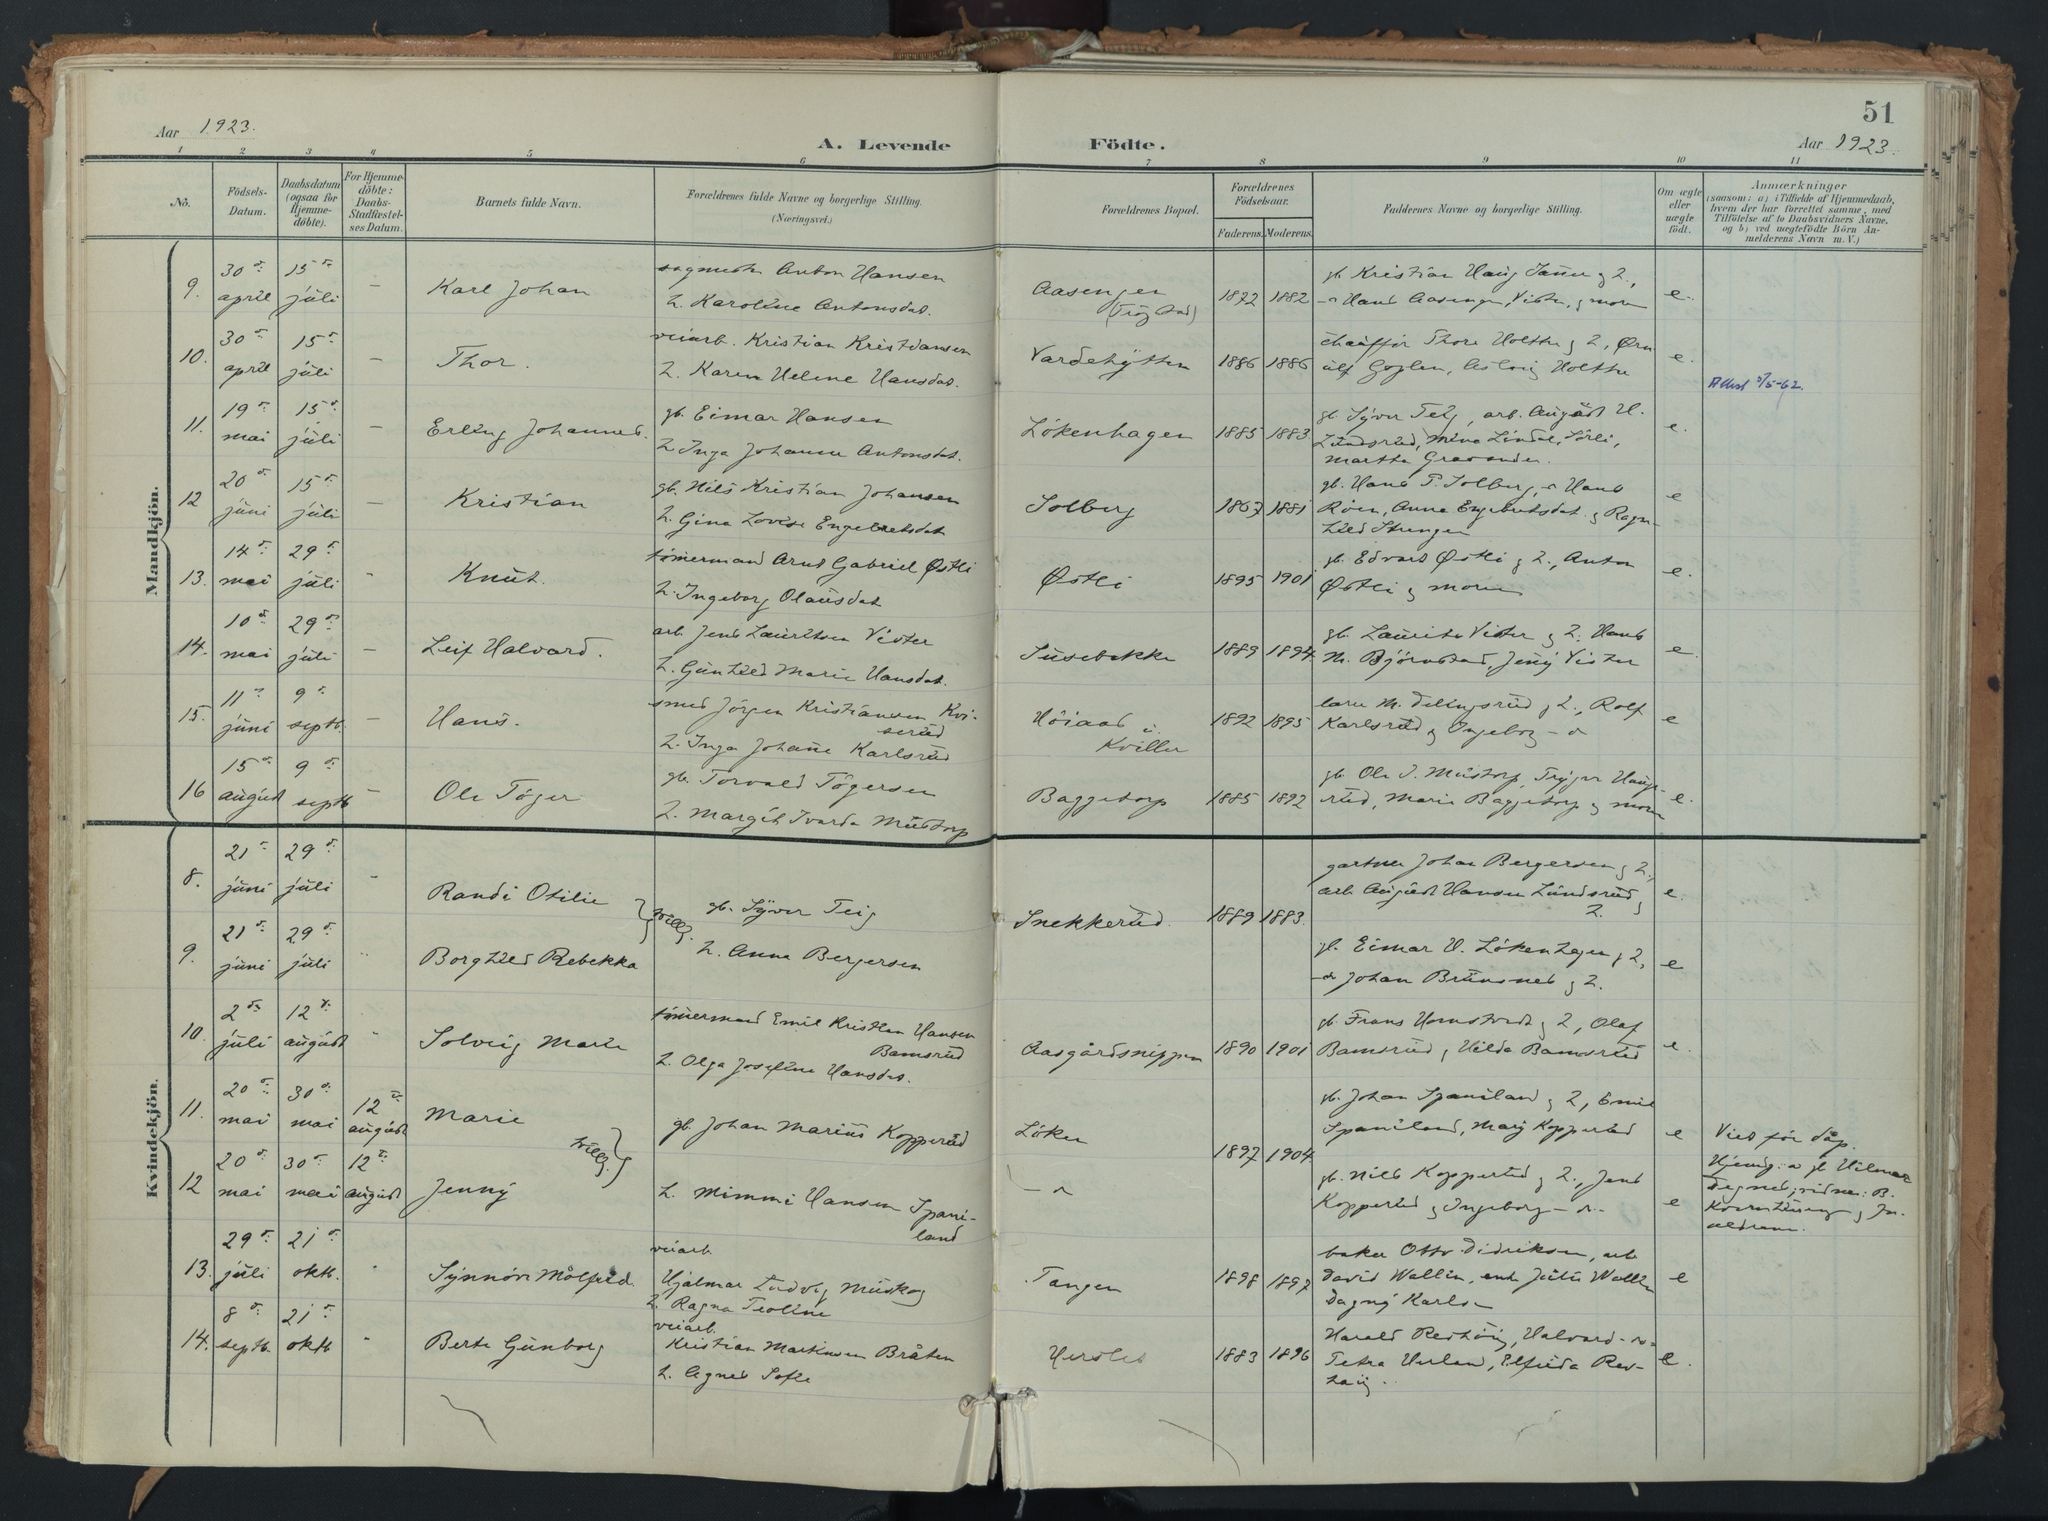 51
Aar 1923.
A. Levende Födte.
Aar 1923.
1 2 3 4 5 6 7 8 9 10 11
No.
Födsels-Datum.
Daabsdatum (ogsaa for Hjemmedöbte).
For Hjemmedöbte: Daabs-Stadfæstelses Datum.
Barnets fulde Navn.
Forældrenes fulde Navne og borgerlige Stilling.
(Næringsvei.)
Forældrenes Bopæl.
Forældrenes Födselsaar.
Faderens. Moderens.
Faddernes Navne og borgerlige Stilling.
Om ægte eller uægte födt.
Anmærkninger
(saasom: a) i Tilfælde af Hjemmedaab,
hvem der har forrettet samme, med
Tilföielse af to Daabsvidners Navne,
og b) ved uægtefödte Börn An-
melderens Navn m. V.)
Mandkjön.
9. 30 april 15 juli – Karl Johan
Anton Hansen
h. Karoline Antonsdat.
Aasengen
1872 1882
gb. Kristian Haug
Hans Aasengen, Vister, g moren
e.
10. 30 april 15 juli – Thor.
veiarb. Kristian Kristiansen
h. Karen Helene Hansdat.
Vardehytten
1886 1886
chauffør Thore Holthe g h.,
e.
Attest 5/5-62.
11. 19 mai 15 juli – Erling Johannes.
gb. Eimar Hansen
h. Inga Johanne Antonsdat.
Lökenhagen
1885 1883
gb. Syver Teig, arb. August H.
Lundsrud,
Martha
e.
12 20 juni 15 juli – Kristian
gb. Nils Kristian Johansen
h. Gina Lovise Engebretsdat
Solberg
1867 1881
gb. Hans T. Solberg, Hans
Anne Engebretsdat. g Ragn-
hild
e
13. 14 mai 29 juli Knut.
tömmermand Arnt Gabriel Østli
h. Ingeborg Olausdat
Østli
1895 1901
gb. Edvard Østli g h., Anton
Østli g moren
e.
14. 10 mai 29 juli – Leif Halvard.
arb. Jens Lauritsen Vister
h. Gunhild Marie Hansdat.
Susebakke
1889 1894
gb. Laurits Vister g h. Hans
M. Björnstad, Jenny Vister
e.
15. 11 juni 9 septb. – Hans.
smed Jörgen Kristiansen Kvi-
serud
h. Inga Johanne Karlsrud
Höiaas i
Kviller
1892 1895
M. Delingsrud g h., Rolf
Karlsrud g Ingeborg
e
16 15 august 9 septb – Ole Töger
gb. Torvald Tögersen
h. Margit Ivarda Mustorp
Baggetorp
1885 1892
gb. Ole J. Mustorp, Trygve Haug-
rud, Marie Baggetorp g moren
e.
Kvindekjön.
8. 21 juni 29 juli Randi Otilie
gb. Syver Teig
Snekkerud.
1889 1883.
gartner Johan Bergersen g h.,
arb August Hansen Lundsrud g
h.
e.
9. 21 juni 29 juli Borghild Rebekka
tvill.
h. Anna Bergersen
gb. Eimar H. Lökenhagen g h.,
Johan g h.
e
10. 2 juli 12 august Solveig Marie
tömmermand Emil Kristian Hansen
Bamsrud
h. Olga Josefine Hansdat.
Aasgårdsnippen
1890 1901
gb. Frans g h, Olaf
Bamsrud g Hilda Bamsrud
e.
11. 20 mai 30 mai 12 august Marie
tvill.
gb. Johan Marius Kopperud
Löken
1897 1904
gb. Johan Spaniland g h, Emil
Spaniland, Mary Kopperud
e
Vies før dåp.
12 20 mai 30 mai 12 august Jenny
h. Mimmi Hansen Spani-
land
gb. Nils Kopperud g h., Jens
Kopperud g Ingeborg
e
Hjemd. a gb Hilmar
13. 29 juli 21 oktb. Synnöve Målfrid.
veiarb.
Hjalmar Ludvig Muskog
h. Ragna Teoline
Tangen
1898 1897
baker Otto Didriksen, arb
David Wallin, Wallin
Dagny Karlsen
e
14. 8 septb. 21 oktb Berte Gunborg
veiarb.
Kristian Martinsen Bråten
h. Agnes Sofie
Herslet
1883 1896
Harald Redhaug, Halvard
Petra Elfrida Red-
haug.
e.